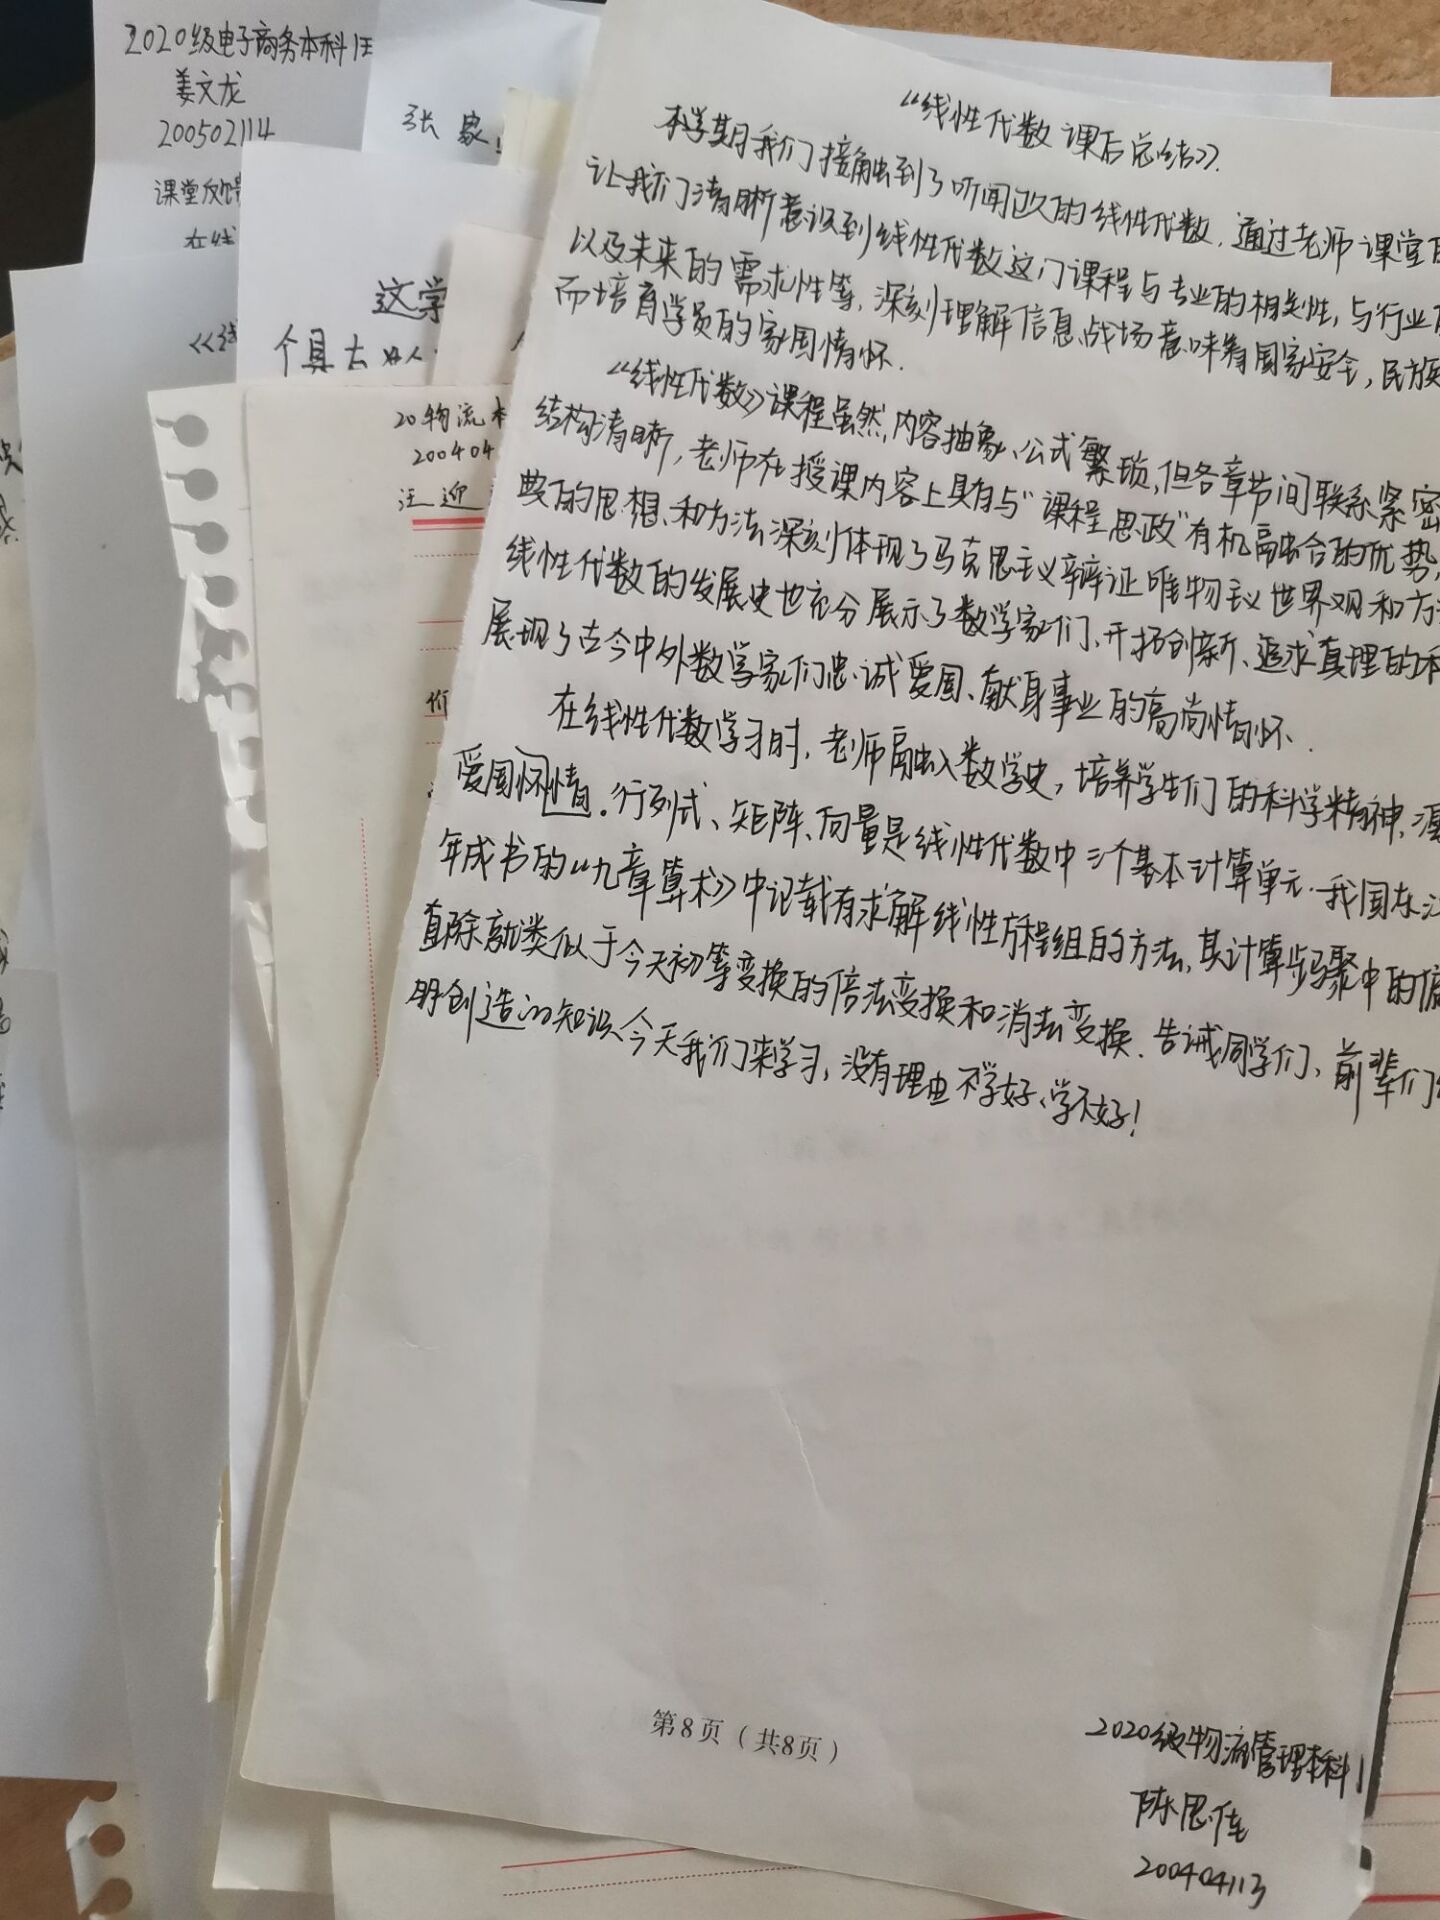 2020级电子商务本科1班
姜文龙
200502114
课堂反馈
在线
张
这学
个具
20物流本
200404
汪迎
价
《线性代数课后总结》.
本学期我们接触到了听闻已久的线性代数，通过老师课堂
让我们清晰意识到线性代数这门课程与专业的相关性，与行业
以及未来的需求性等，深刻理解信息战场意味着国家安全，民族
而培育学员的家国情怀.
《线性代数》课程虽然内容抽象、公式繁琐，但各章节间联系紧密
结构清晰，老师在授课内容上具有与“课程思政”有机融合的优势，
典的思想和方法深刻体现了马克思主义辩证唯物主义世界观和方
线性代数的发展史也充分展示了数学家们开拓创新、追求真理的
展现了古今中外数学家们忠诚爱国、献身事业的高尚情怀.
在线性代数学习时，老师融入数学史，培养学生们的科学精神、
爱国怀情.行列式、矩阵、向量是线性代数中三个基本计算单元.我国东
年成书的《九章算术》中记载有求解线性方程组的方法，其计算步骤中的
直除就类似于今天初等变换的倍法变换和消法变换.告诫同学们，前辈们
创造的知识今天我们来学习，没有理由不学好、学不好！
第8页（共8页）
2020级物流管理本科1
陈思佳
200404113